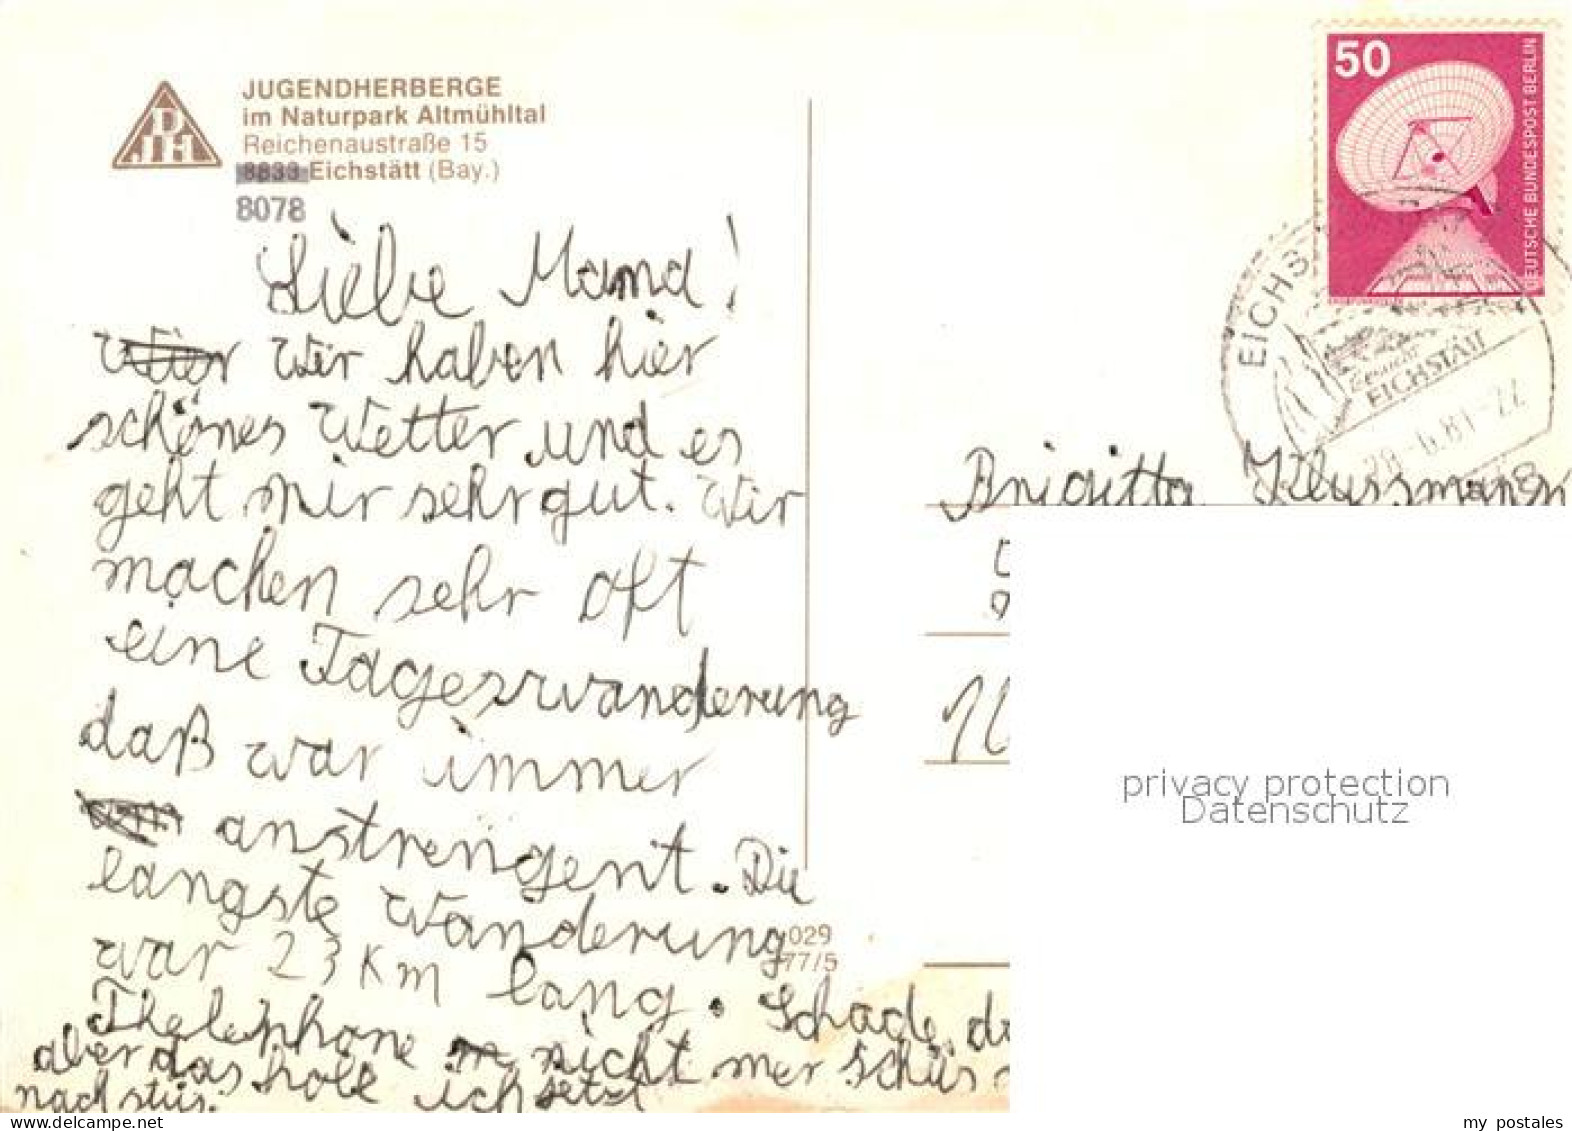 JUGENDHERBERGE
im Naturpark Altmühltal
Reichenaustraße 15
8833 Eichstätt (Bay.)
8078
50
DEUTSCHE BUNDESPOST BERLIN
EICHS
EICHSTÄTT
28.-6.81-22
Liebe Mama!
Wir haben hier
schönes Wetter und es
geht mir sehr gut. Wir
machen sehr oft
eine Tageswanderung
daß war immer
anstrengent. Die
langste Wanderung
war 23 Km lang. Schade, da
Thelephone nicht mer schüs
aber das holt ich jetzt
nach
Brigitta Klussmann
029
77/5
privacy protection
Datenschutz
www.delcampe.net
my_postales